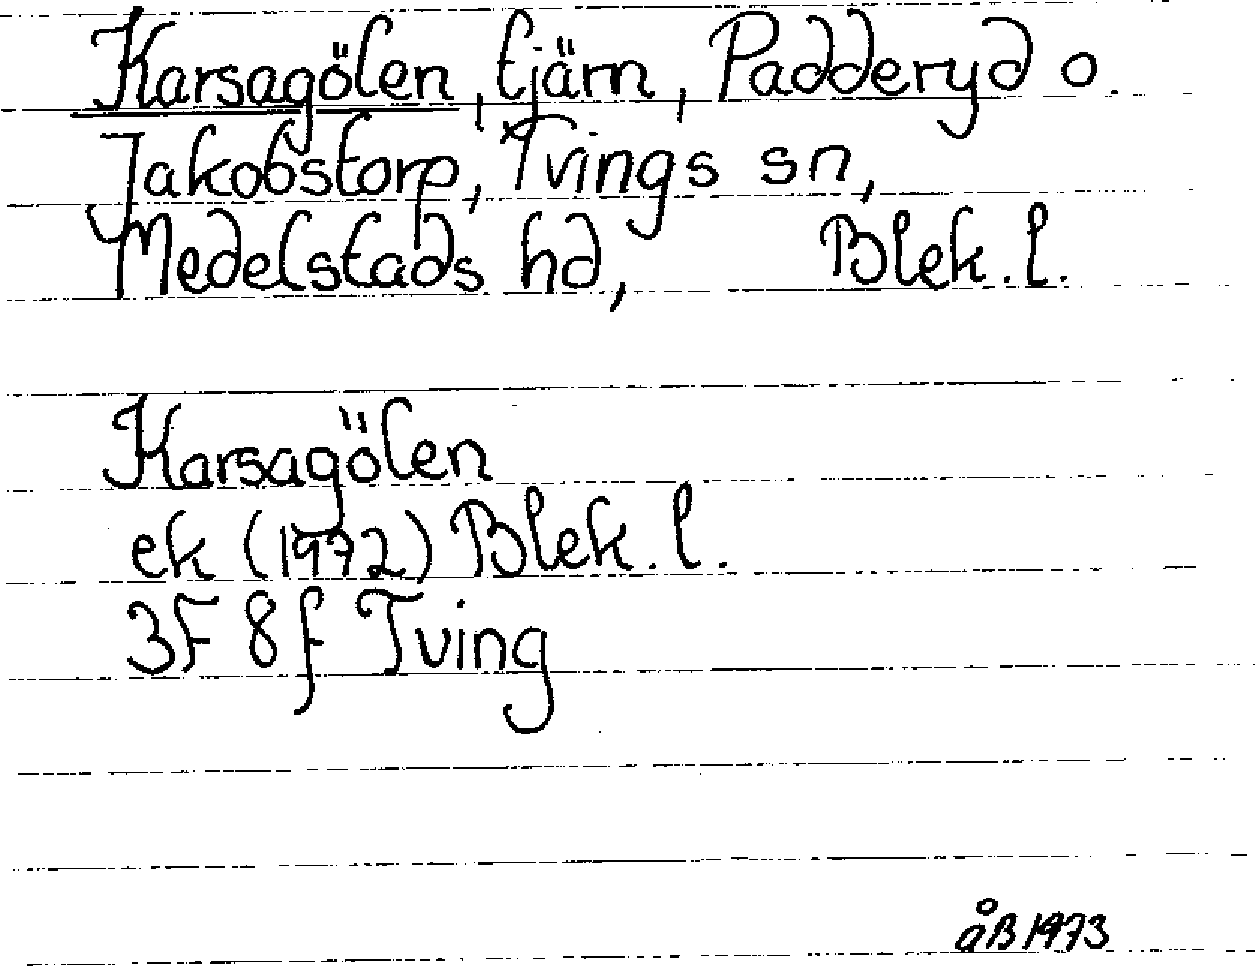 Karsagölen, tjärn, Padderyd o.
Jakobstorp, Tvings sn,
Medelstads hd, Blek. l.
Karsagölen
ek (1972) Blek. l.
3F 8f Tving
åB 1973